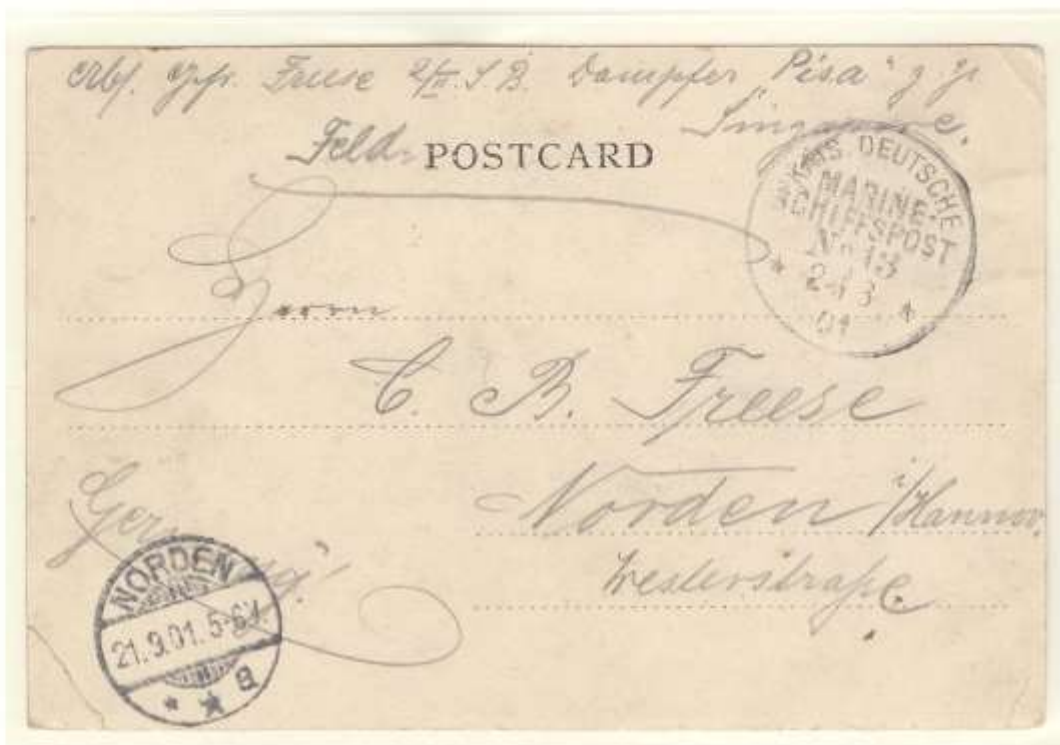 Abs. Gefr. Freese 2/II. S. B. Dampfer "Pisa" z. Zt.
Singapore.
Feld- POSTCARD
KAIS. DEUTSCHE
MARINE-
SCHIFFSPOST
No 13
8
01
Herrn
C. B. Freese
Norden i/Hannov.
Westerstraße
Germany
NORDEN
21.9.01. 5-6V.
* * a